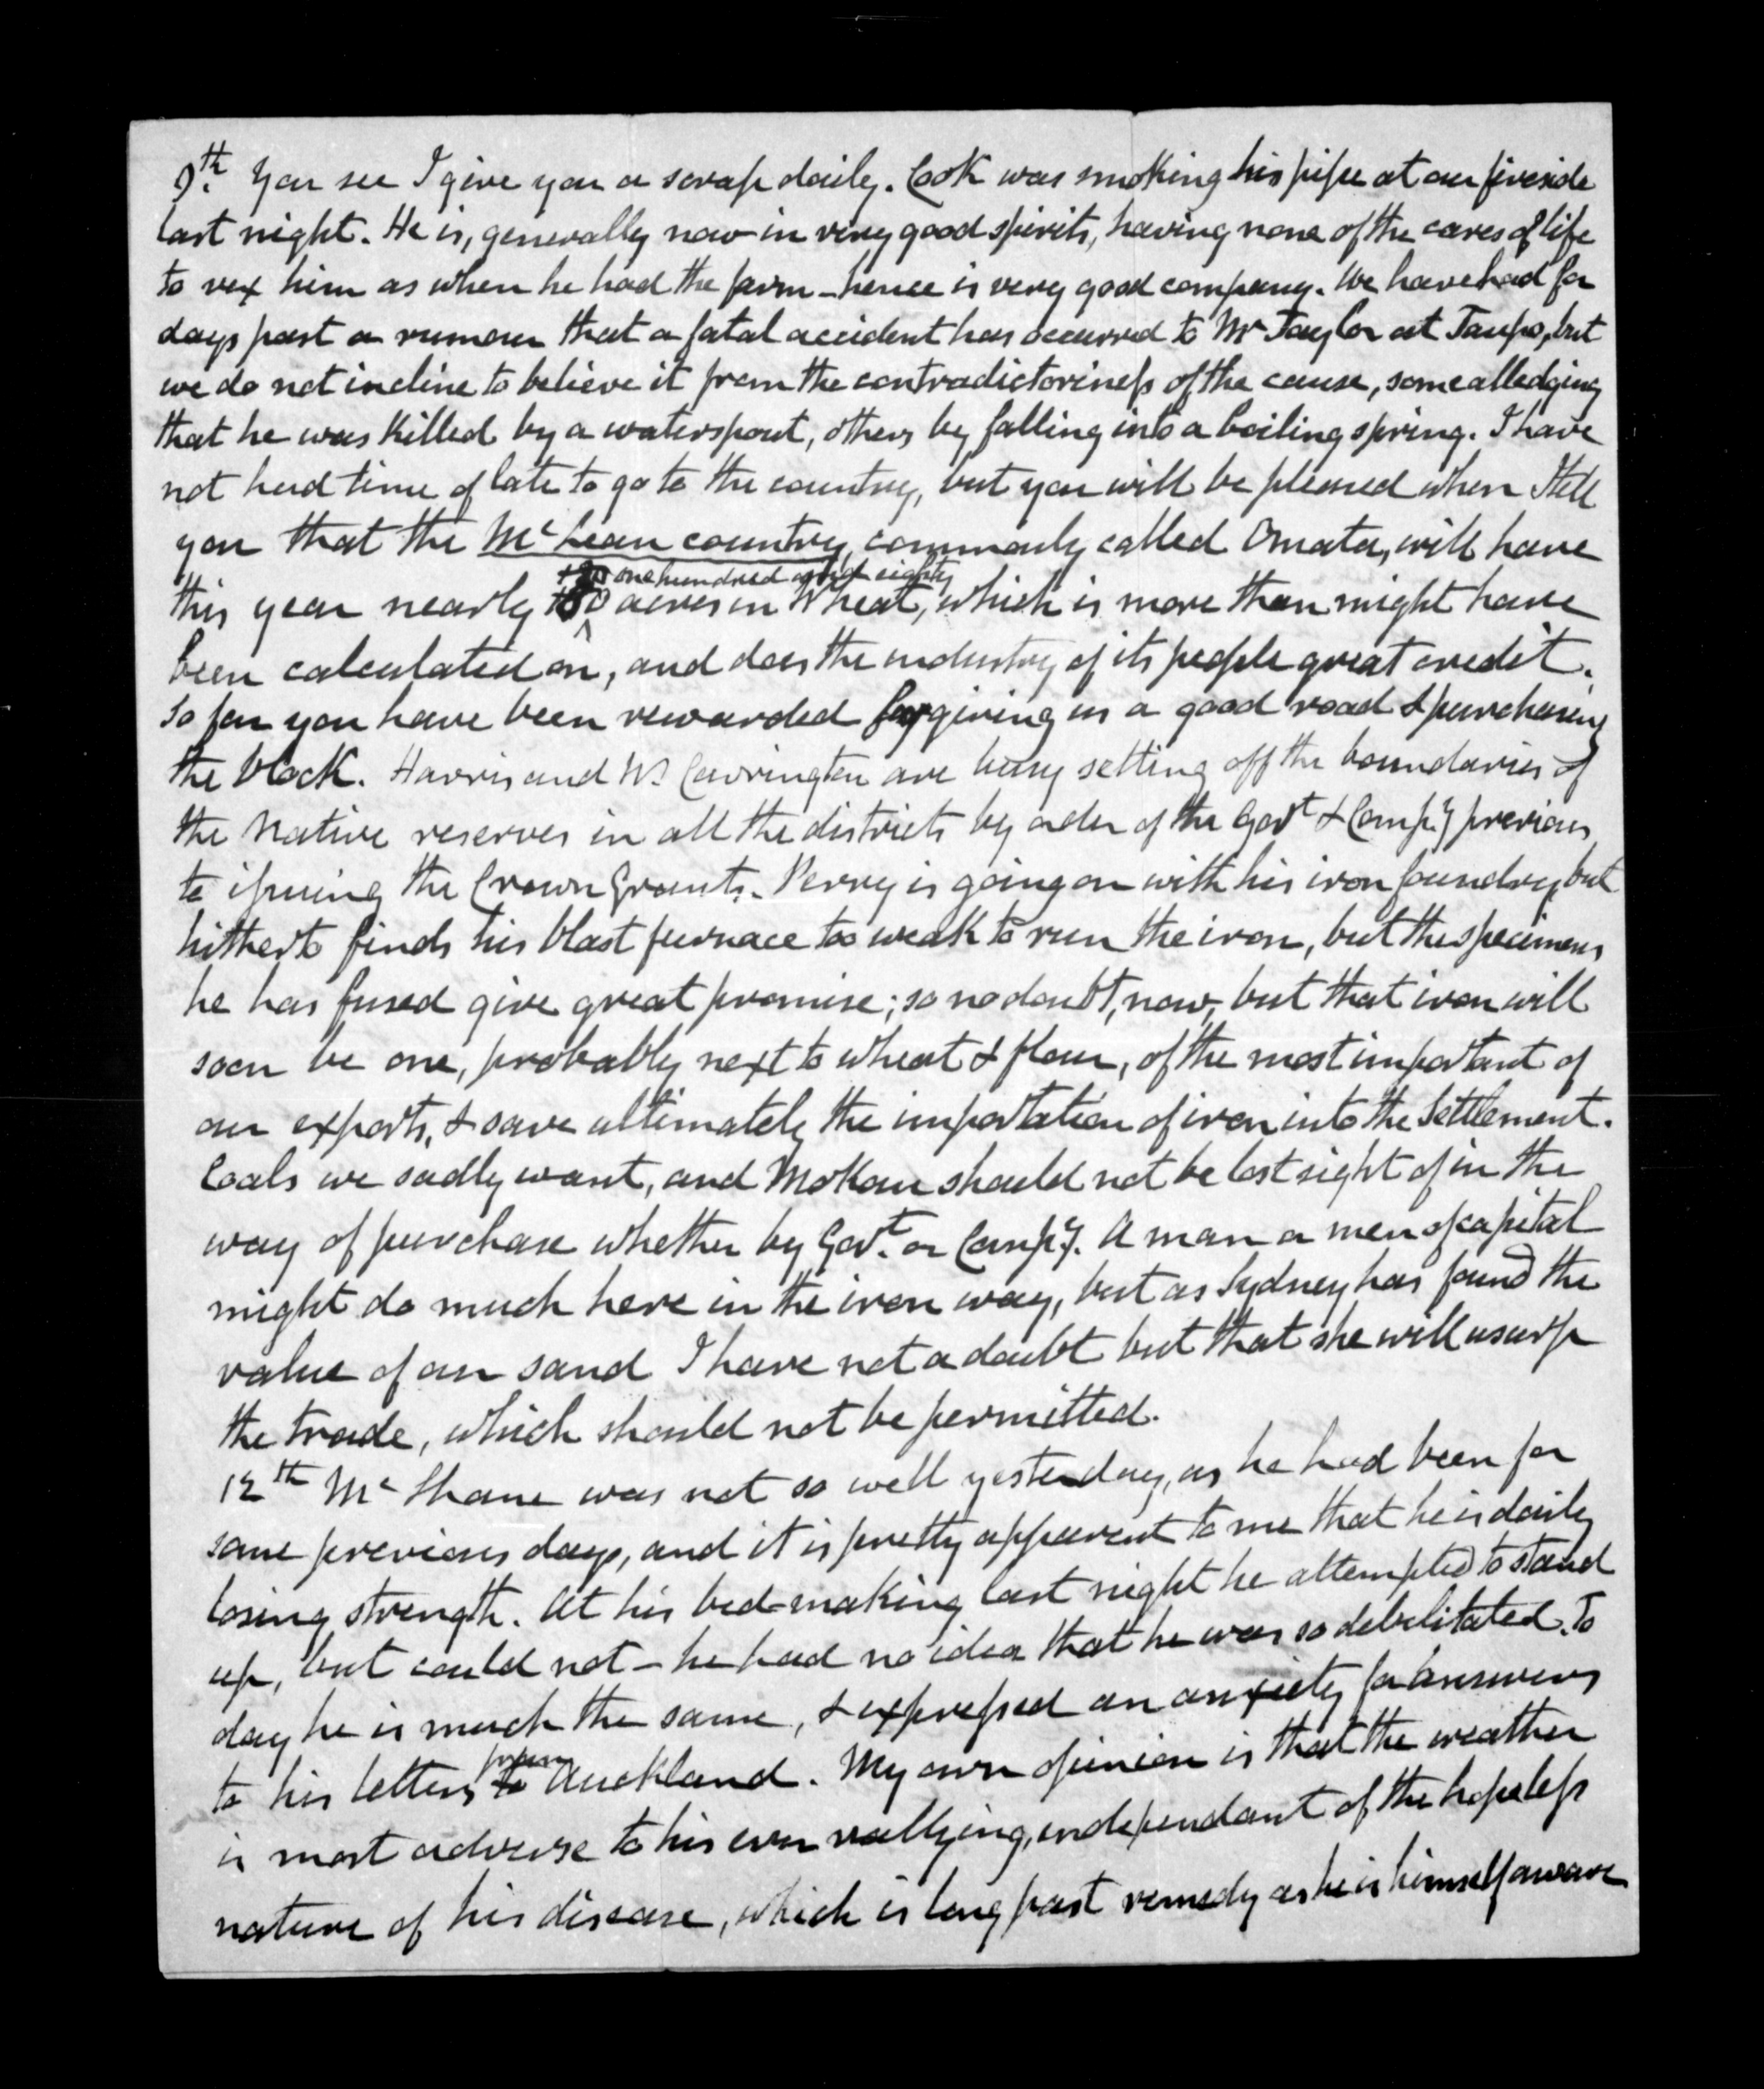 9th. You see I give you a scrap daily. Cook was smoking his pipe at our fireside
last night. He is, generally now in very good spirits, having none of the cares of life
to vex him as when he had the farm – hence is very good company. We have had for
days past a rumour that a fatal accident has occurred to Mr Taylor at Taupo, but
we do not incline to believe it from the contradictoriness of the cause, some alledging
that he was killed by a waterspout, others by falling into a boiling spring. I have
not had time of late to go to the country, but you will be pleased when I tell
you that the McLean country, commonly called Omata, will have
one hundred and eighty
this year nearly acres in Wheat, which is more than might have
been calculated on, and does the industry of its people great credit.
So far you have been rewarded for giving us a good road & purchasing
the block. Harris and W. Carrington are busy setting off the boundaries of
the Native reserves in all the districts by order of the Govt & Compy previous
to issuing the Crown Grants. – Perry is going on with his iron foundry, but
hitherto finds his blast furnace too weak to run the iron, but the specimens
he has fused give great promise; so no doubt, now, but that iron will
soon be one, probably next to wheat & flour, of the most important of
our exports, & save ultimately the importation of iron into the Settlement.
Coals we sadly want, and Mokau should not be lost sight of in the
way of purchase whether by Govt. or Compy. A man or men of capital
might do much here in the iron way, but as Sydney has found the
value of our sand I have not a doubt but that she will usurp
the trade, which should not be permitted.
12th McShane was not so well yesterday, as he had been for
some previous days, and it is pretty apparent to me that he is daily
losing strength. At his bed-making last night he attempted to stand
up, but could not – he had no idea that he was so debilitated. To
day he is much the same, & expressed an anxiety for answers
from
to his letters to Auckland. My own opinion is that the weather
is most adverse to his ever rallying, independant of the hopeless
nature of his disease, which is long past remedy as he is himself aware